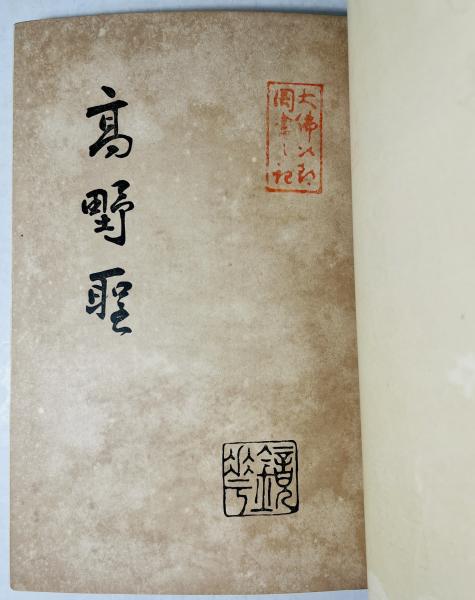 大佛次郎
圖書之記
高野聖
鏡花